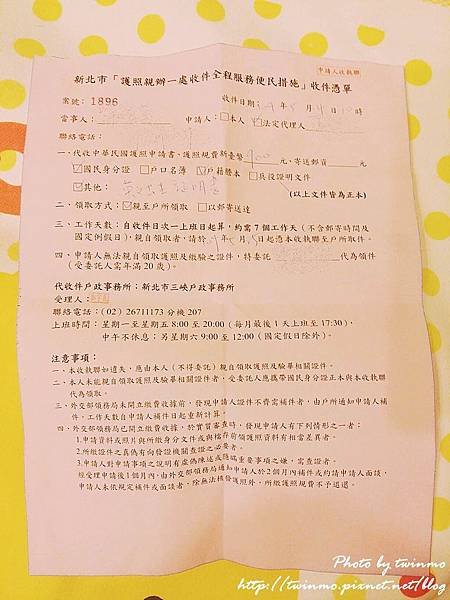 申請人收執聯
新北市「護照親辦一處收件全程服務便民措施」收件憑單
案號：1896
收件日期：年5月日時
當事人：
申請人：□本人 ☑法定代理人
聯絡電話：
一、代收中華民國護照申請書、護照規費新臺幣900元、寄送郵資元
☑國民身分證 □戶口名簿 ☑戶籍謄本 □兵役證明文件
☑其他：出生證明書
(以上文件皆為正本)
二、領取方式：☑親至戶所領取 □以郵寄送達
三、工作天數：自收件日次一上班日起算，約需7個工作天（不含郵寄時間及
國定例假日），親自領取者，請於年5月日起憑本收執聯至戶所取件。
四、申請人無法親自領取護照及繳驗之證件，特委託代為領件
（受委託人需年滿20歲）。
代收件戶政事務所：新北市三峽戶政事務所
受理人：
聯絡電話：(02) 26711173 分機 207
上班時間：星期一至星期五 8:00 至 20:00（每月最後 1 天上班至 17:30），
中午不休息；另星期六 9:00 至 12:00（國定假日除外）。
注意事項：
一、本收執聯如遺失，應由本人（不得委託）親自領取護照及驗畢相關證件。
二、本人未能親自領取護照及驗畢相關證件者，受委託人應攜帶國民身分證正本與本收執聯
代為領取。
三、外交部領務局未開立繳費收據前，發現申請人證件不齊需補件者，由戶所通知申請人補
件，工作天數自申請人補件日起重新計算。
四、外交部領務局已開立繳費收據，於實質審查時，發現申請人有下列情形之一者：
1.申請資料或照片與所繳身分文件或與檔存前領護照資料有相當差異者。
2.所繳證件之真偽有向發證機關查證之必要者。
3.申請人對申請事項之說明有虛偽陳述或隱瞞重要事項之嫌，需查證者。
經受理申請後1個月內，由外交部領務局通知申請人於2個月內補件或約請申請人面談，
申請人未依規定補件或面談者，除無法核發護照外，所繳護照規費不予退還。
Photo by twinmo
http://twinmo.pixnet.net/blog